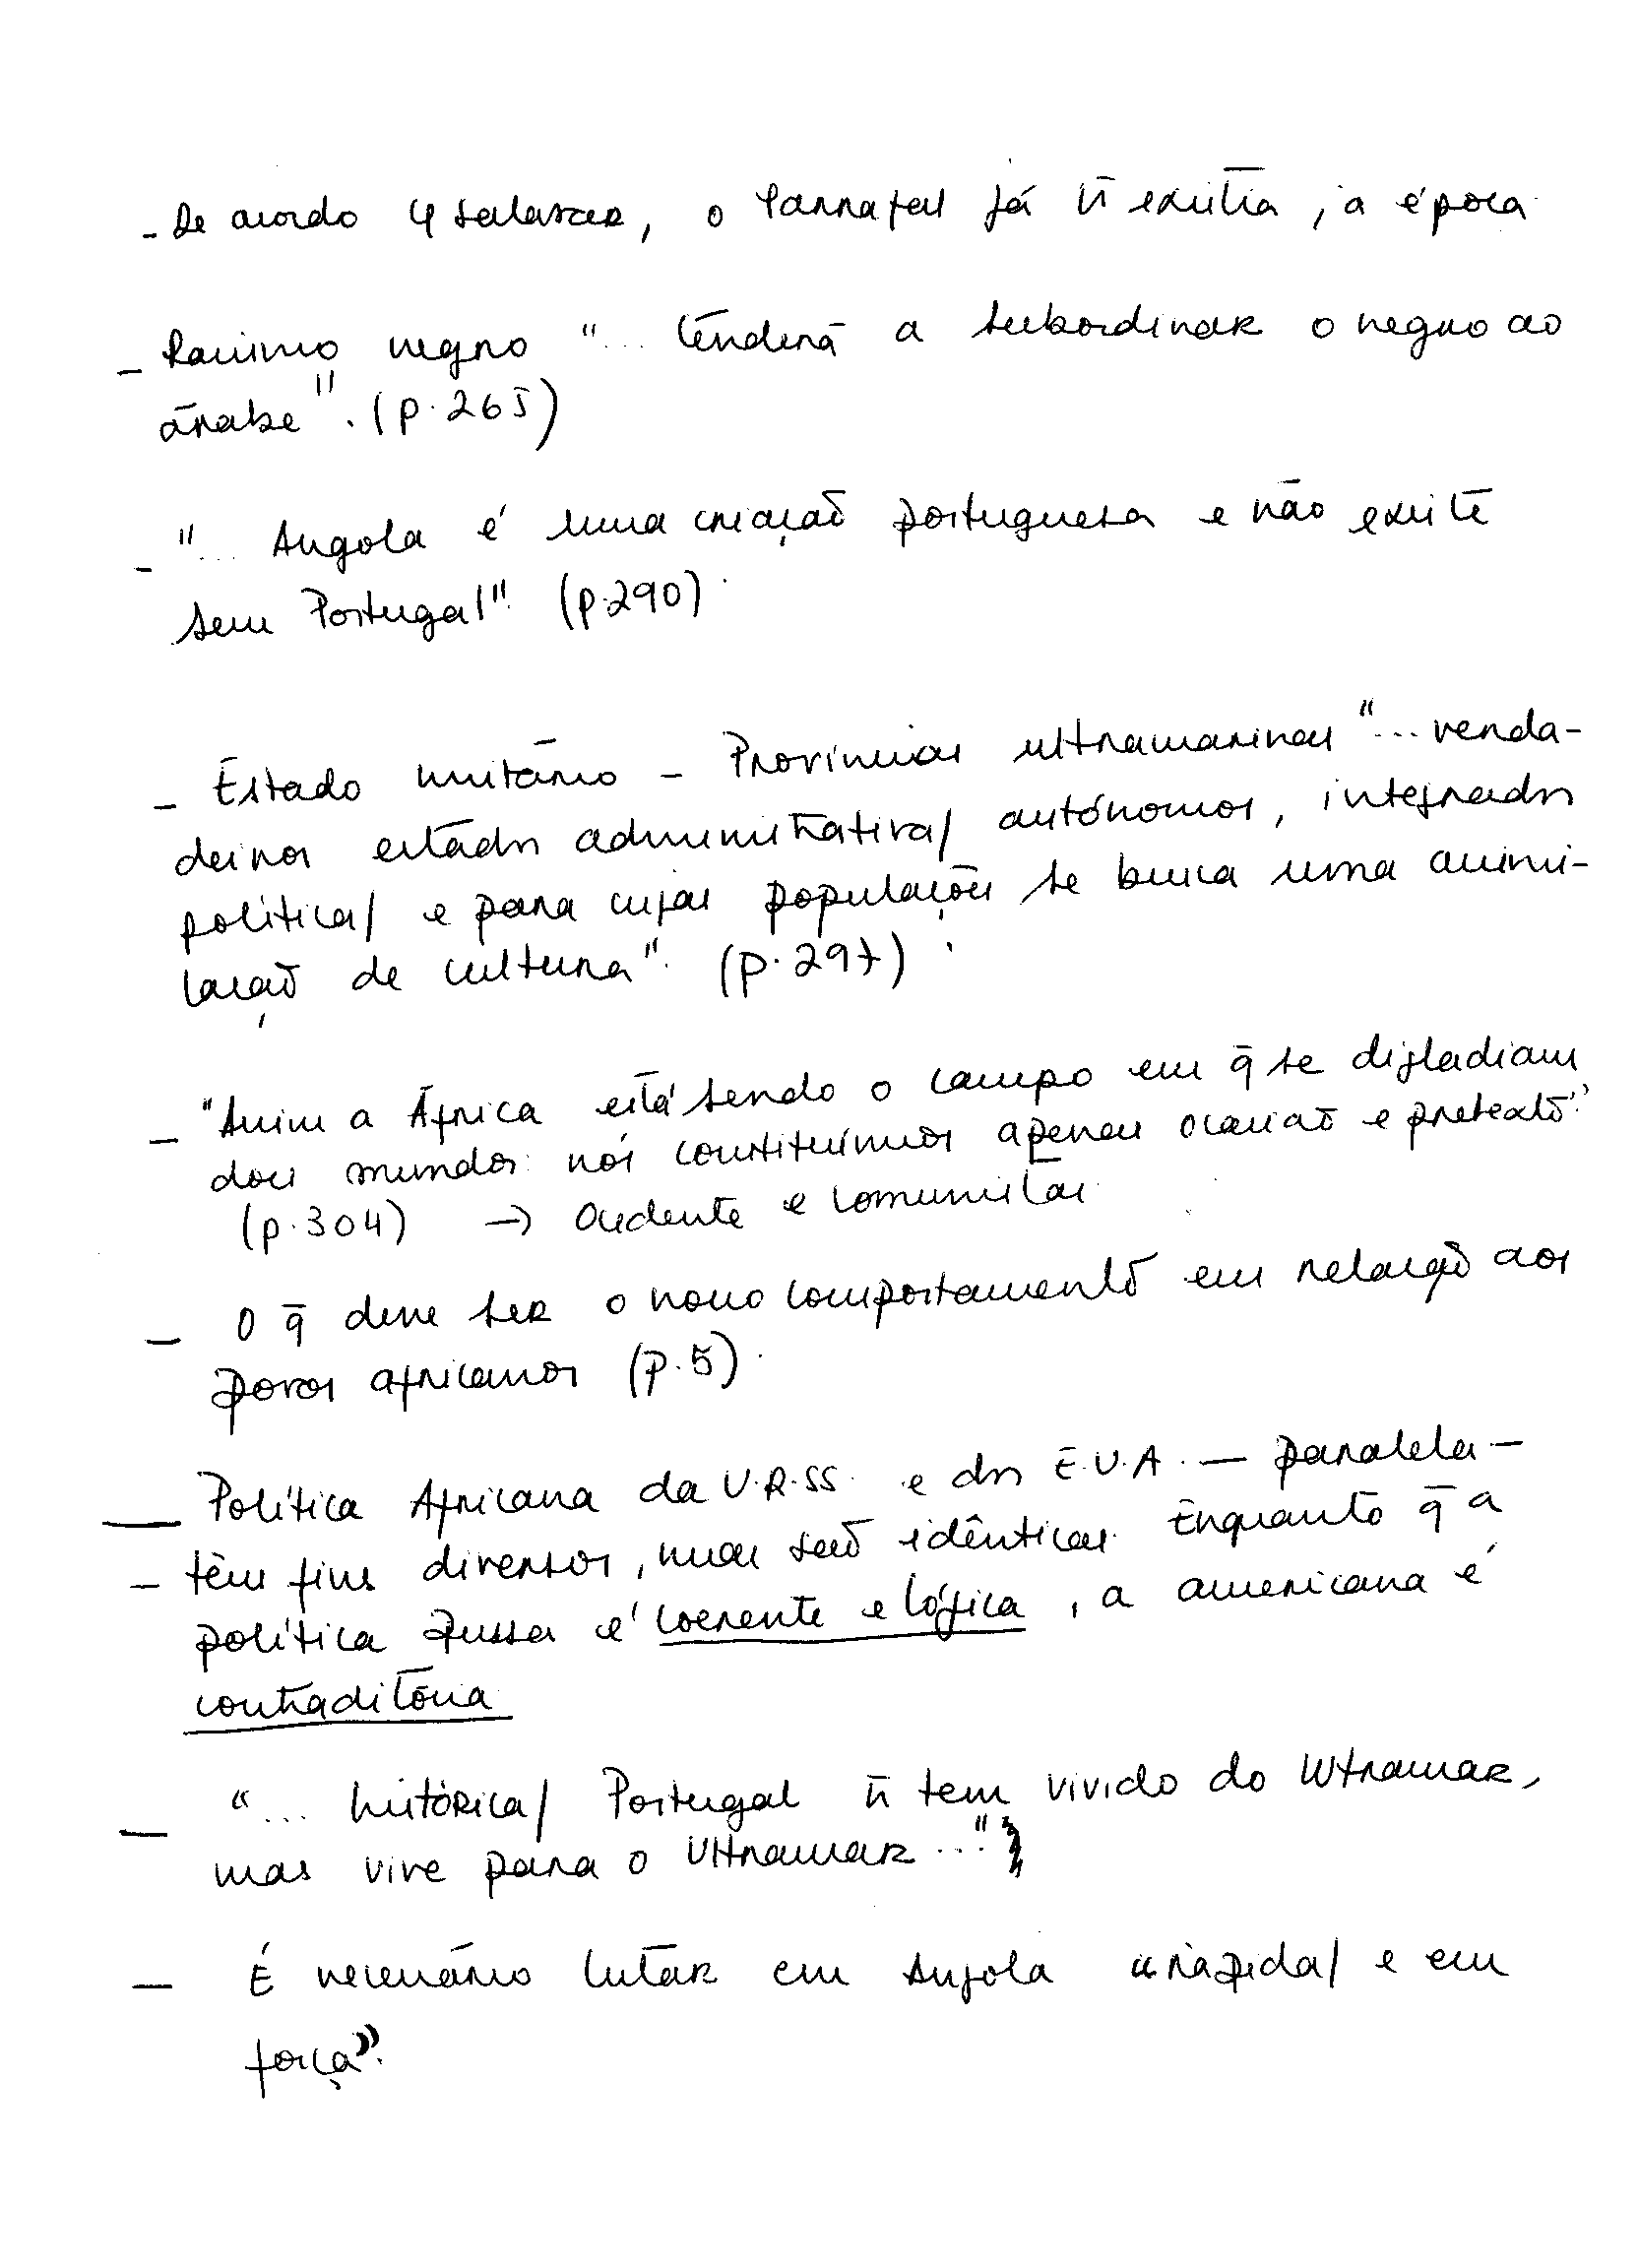 - De acordo c/ Salazar, o Tarrafal já ñ existia, à época
- Racismo negro "... tenderá a subordinar o negro ao
árabe". (p. 265)
- "... Angola é uma criação portuguesa e não existe
sem Portugal". (p. 290)
- Estado unitário - Províncias ultramarinas "... verda-
deiros estados administrativa/ autónomos, integrados
política/ e para cujas populações se busca uma assimi-
lação de cultura". (p. 297)
- "Assim a África está sendo o campo em q̄ se digladiam
dois mundos: nós constituímos apenas ocasião e pretexto".
(p. 304) → Ocidente e comunistas
- O q̄ deve ser o novo comportamento em relação aos
povos africanos (p. 5).
- Política Africana da U.R.SS. e dos E.U.A. - paralela -
- têm fins diversos, mas são idênticas. Enquanto q̄ a
política russa é coerente e lógica, a americana é
contraditória
- "... histórica/ Portugal ñ tem vivido do Ultramar,
mas vive para o Ultramar ..."
- É necessário lutar em Angola "rápida/ e em
força".